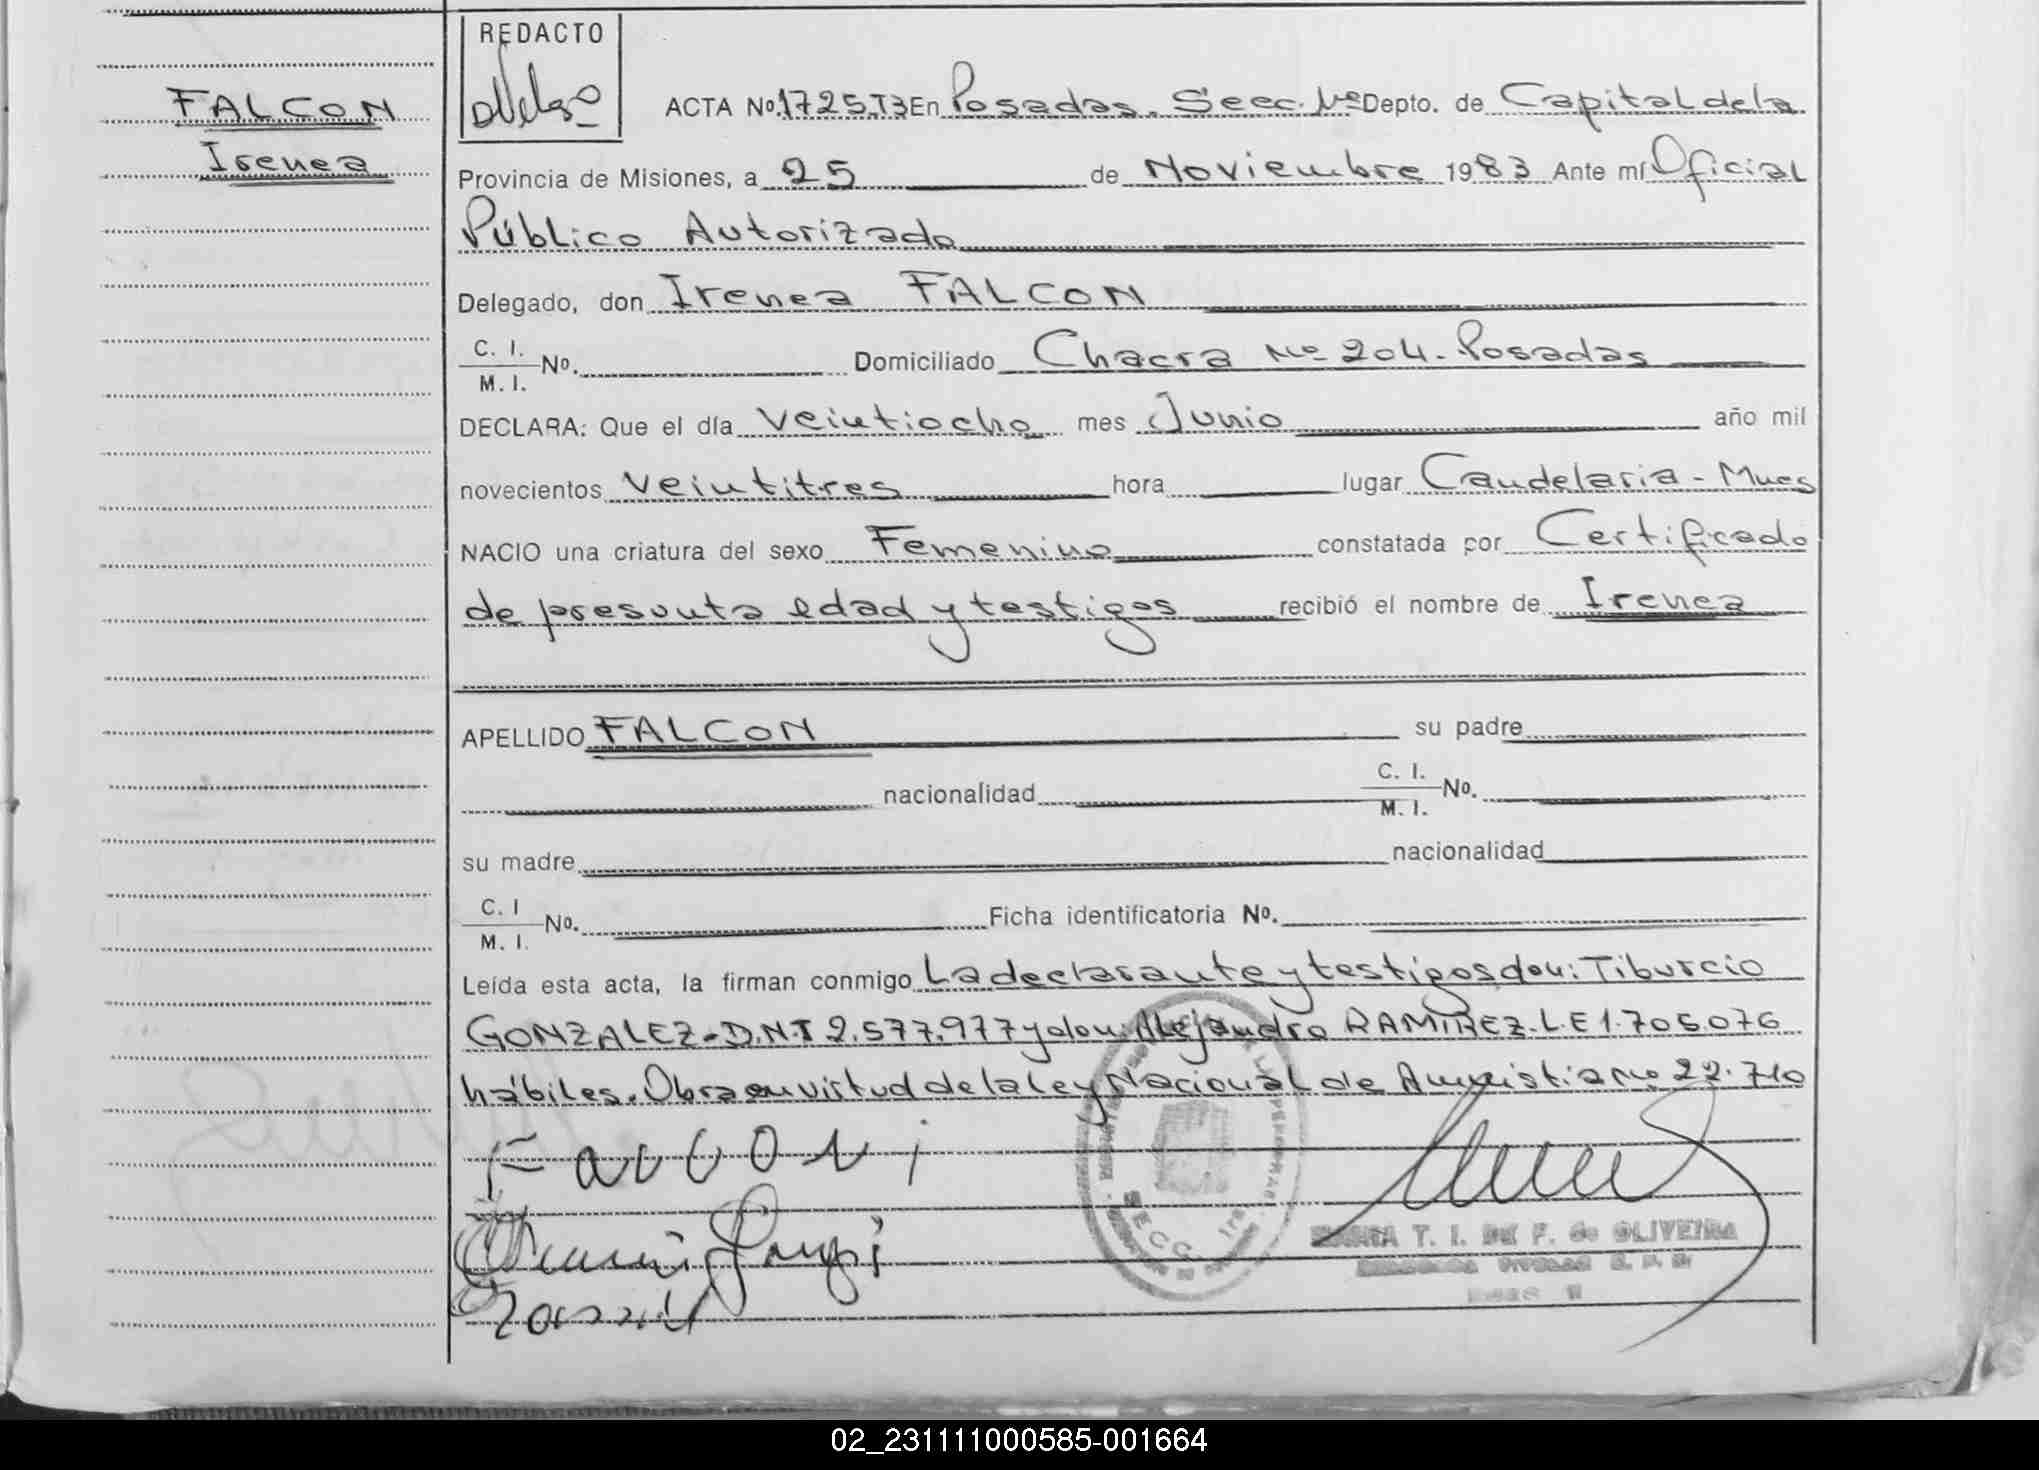 FALCON
Irenea
REDACTO
ACTA Nº.1725.T3 En Posadas. Secc. 1ra Depto. de Capital de la
Provincia de Misiones, a 25 de Noviembre 1983 Ante mí Oficial
Público Autorizado
Delegado, don Irenea FALCON
C. I.
M. I. Nº. Domiciliado Chacra Nº 204. Posadas
DECLARA: Que el día veintiocho mes Junio año mil
novecientos veintitres hora lugar Candelaria - Mnes
NACIO una criatura del sexo Femenino constatada por Certificado
de presunta edad y testigos recibió el nombre de Irenea
APELLIDO FALCON su padre
nacionalidad C. I.
M. I. No.
su madre nacionalidad
C. I
M. I. No. Ficha identificatoria Nº.
Leída esta acta, la firman conmigo La declarante y testigos don: Tiburcio
GONZALEZ - D.N.I 2.577.977 y don: Alejandro RAMIREZ. L.E 1.705.076
hábiles. Obra en virtud de la ley Nacional de Amnistia nº 22.710
SECC. 1ra
T. I. DE F. de OLIVEIRA
02_231111000585-001664